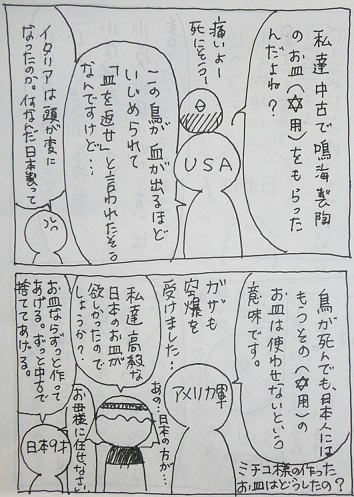 私達中古で鳴海製陶
のお皿(✡用)をもらった
んだよね?
痛いよー
死にそうー
日
USA
この鳥が血が出るほど
いじめられて
「皿を返せ」と言われたそう
なんですけど…
イタリアは頭が変に
なったのか。何なんだ日本製って
鳥が死んでも、日本人には
もうその(✡用)の
お皿は使わせないという
意味です。
ミチコ様の作った
お皿はどうしたの?
アメリカ軍
ガザも
空爆を
受けました…
あの…日本の方が…
私達高級な
日本のお皿が
欲しかったので
しょうか?
お母様に任せなさい
お皿ならずっと作って
あげる。ずっと中古で
捨ててあげる。
日本